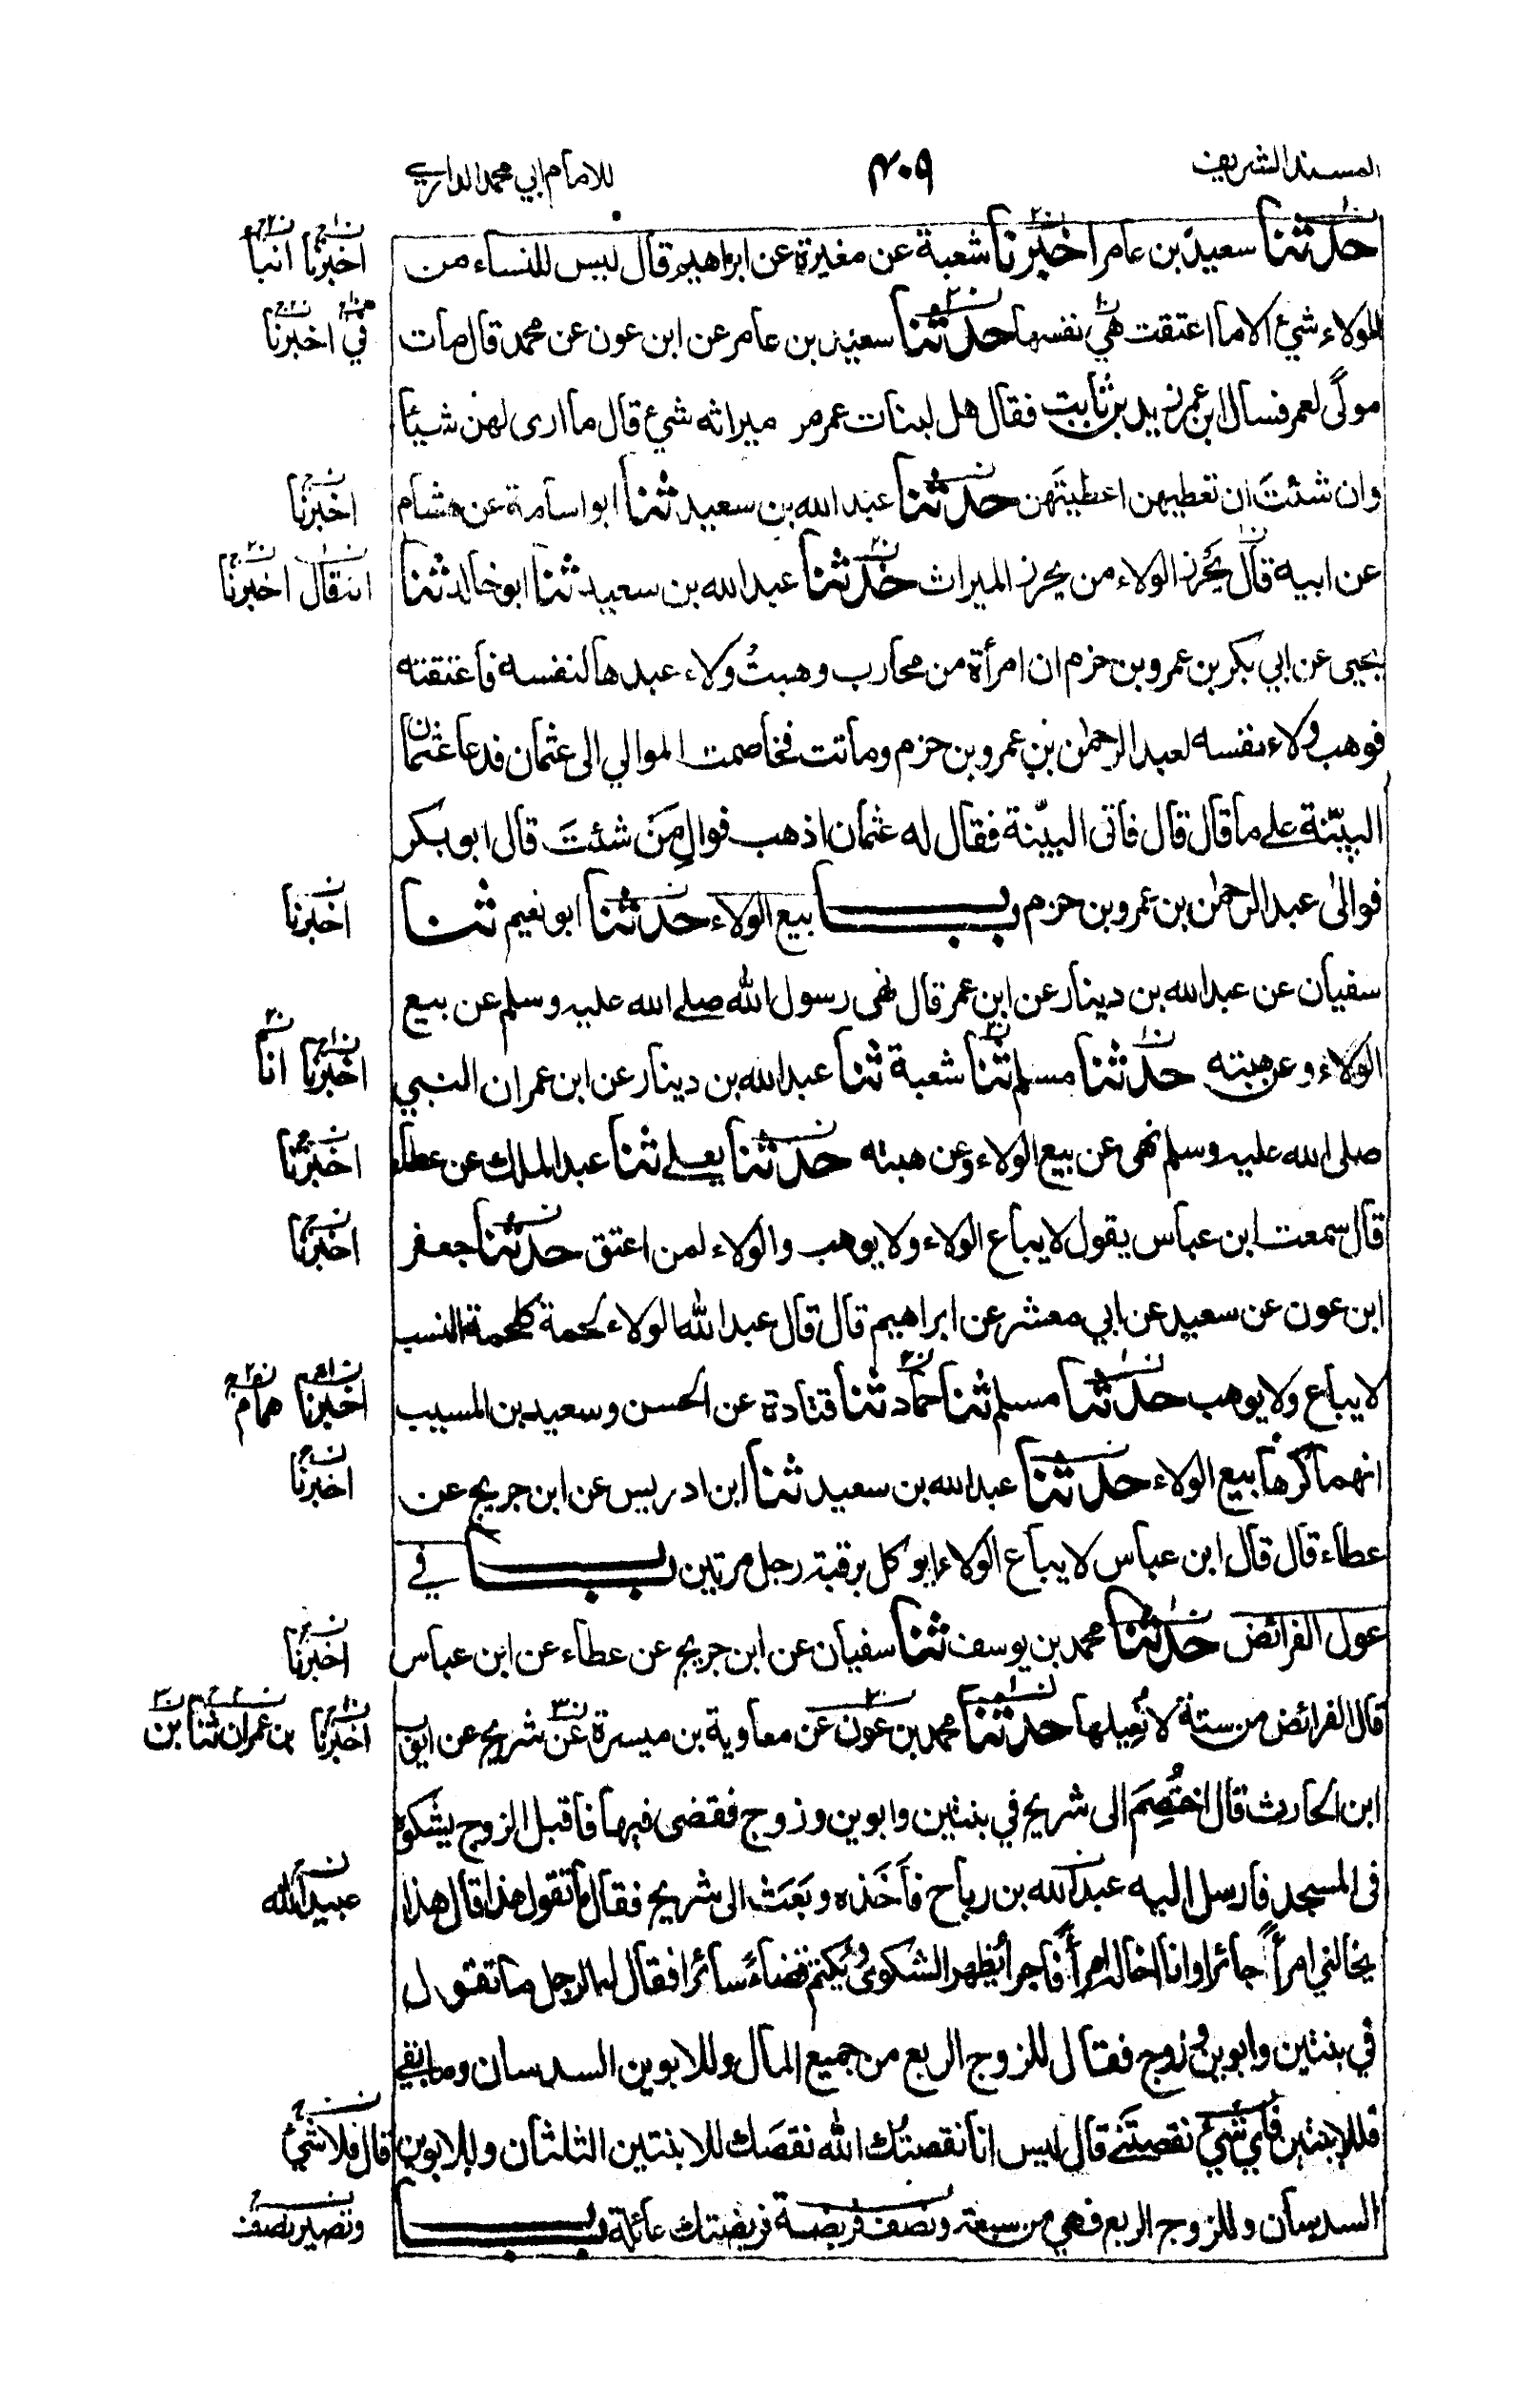 المسند الشريف ٤٠٩ للامام ابي محمد الدارمي
حدثنا سعيد بن عامر اخبرنا شعبة عن مغيرة عن ابراهيم قال ليس للنساء من
اخبرنا انبا
الولاء شئ الا ما اعتقت هي نفسها حدثنا سعيد بن عامر عن ابن عون عن محمد قال مات
في اخبرنا
مولًى لعمر فسال ابن عمر زيد بن ثابت فقال هل لبنات عمر من ميراثه شئ قال ما ارى لهن شيئا
وان شئتَ ان تعطيهن اعطيتَهن حدثنا عبد الله بن سعيد ثنا ابو اسامة عن هشام
اخبرنا
عن ابيه قال يُحَرز الولاء من يحرز الميراث حدثنا عبد الله بن سعيد ثنا ابو خالد ثنا
انه قال اخبرنا
يحيى عن ابي بكر بن عمرو بن حزم ان امرأة من محارب وهبتُ ولاء عبدها لنفسه فاعتقته
فوهب ولاء نفسه لعبد الرحمٰن بن عمرو بن حزم وماتت فخاصمت الموالي الى عثمان فدعا عثمان
البيّنة على ما قال قال فاتى البيّنة فقال له عثمان اذهب فوالِ مَن شئتَ قال ابو بكر
فوالى عبد الرحمٰن بن عمرو بن حزم باب بيع الولاء حدثنا ابو نعيم ثنا
اخبرنا
سفيان عن عبد الله بن دينار عن ابن عمر قال نهى رسول الله صلى الله عليه وسلم عن بيع
الولاء وعن هبته حدثنا مسلم ثنا شعبة ثنا عبد الله بن دينار عن ابن عمر ان النبي
اخبرنا انا
صلى الله عليه وسلم نهى عن بيع الولاء وعن هبته حدثنا يعلى ثنا عبد الملك عن عطاء
اخبرنا
قال سمعت ابن عباس يقول لا يباع الولاء ولا يوهب والولاء لمن اعتق حدثنا جعفر
اخبرنا
ابن عون عن سعيد عن ابي معشر عن ابراهيم قال قال عبد الله الولاء لحمة كلحمة النسب
لا يباع ولا يوهب حدثنا مسلم ثنا حماد ثنا قتادة عن الحسن وسعيد بن المسيب
اخبرنا همام
انهما كرها بيع الولاء حدثنا عبد الله بن سعيد ثنا ابن ادريس عن ابن جريج عن
اخبرنا
عطاء قال قال ابن عباس لا يباع الولاء ايوكل برقبة رجل مرتين باب في
عول الفرائض حدثنا محمد بن يوسف ثنا سفيان عن ابن جريج عن عطاء عن ابن عباس
اخبرنا
قال الفرائض من ستة لا نُعِيلها حدثنا محمد بن عون عن معاوية بن ميسرة عن شريح عن ايوب
اخبرنا بن عمران ثنا بن
ابن الحارث قال اختُصِمَ الى شريح في بنتين وابوين وزوج فقضى فيها فاقبل الزوج يشكوه
فى المسجد فارسل اليه عبد الله بن رباح فاَخَذه وبَعَث الى شريح فقال ما تقول هذا قال هذا
عبيد الله
يخالني امرأً جائرا وانا اخاله امرأً فاجرا يُظهر الشكوىٰ ويكتم قضاءً سائرا فقال له الرجل ما تقول
في بنتين وابوين وزوج فقال للزوج الربع من جميع المال وللابوين السدسان وما بقي
فللابنتين فاي شئ نقصتَني قال ليس انا نقصتُك الله نقصَك للابنتين الثلثان وللابوين
قال فلاشئ
السدسان وللزوج الربع فهي من سبعة ونصف فريضة فريضتك عائلة باب
وتصير نصف